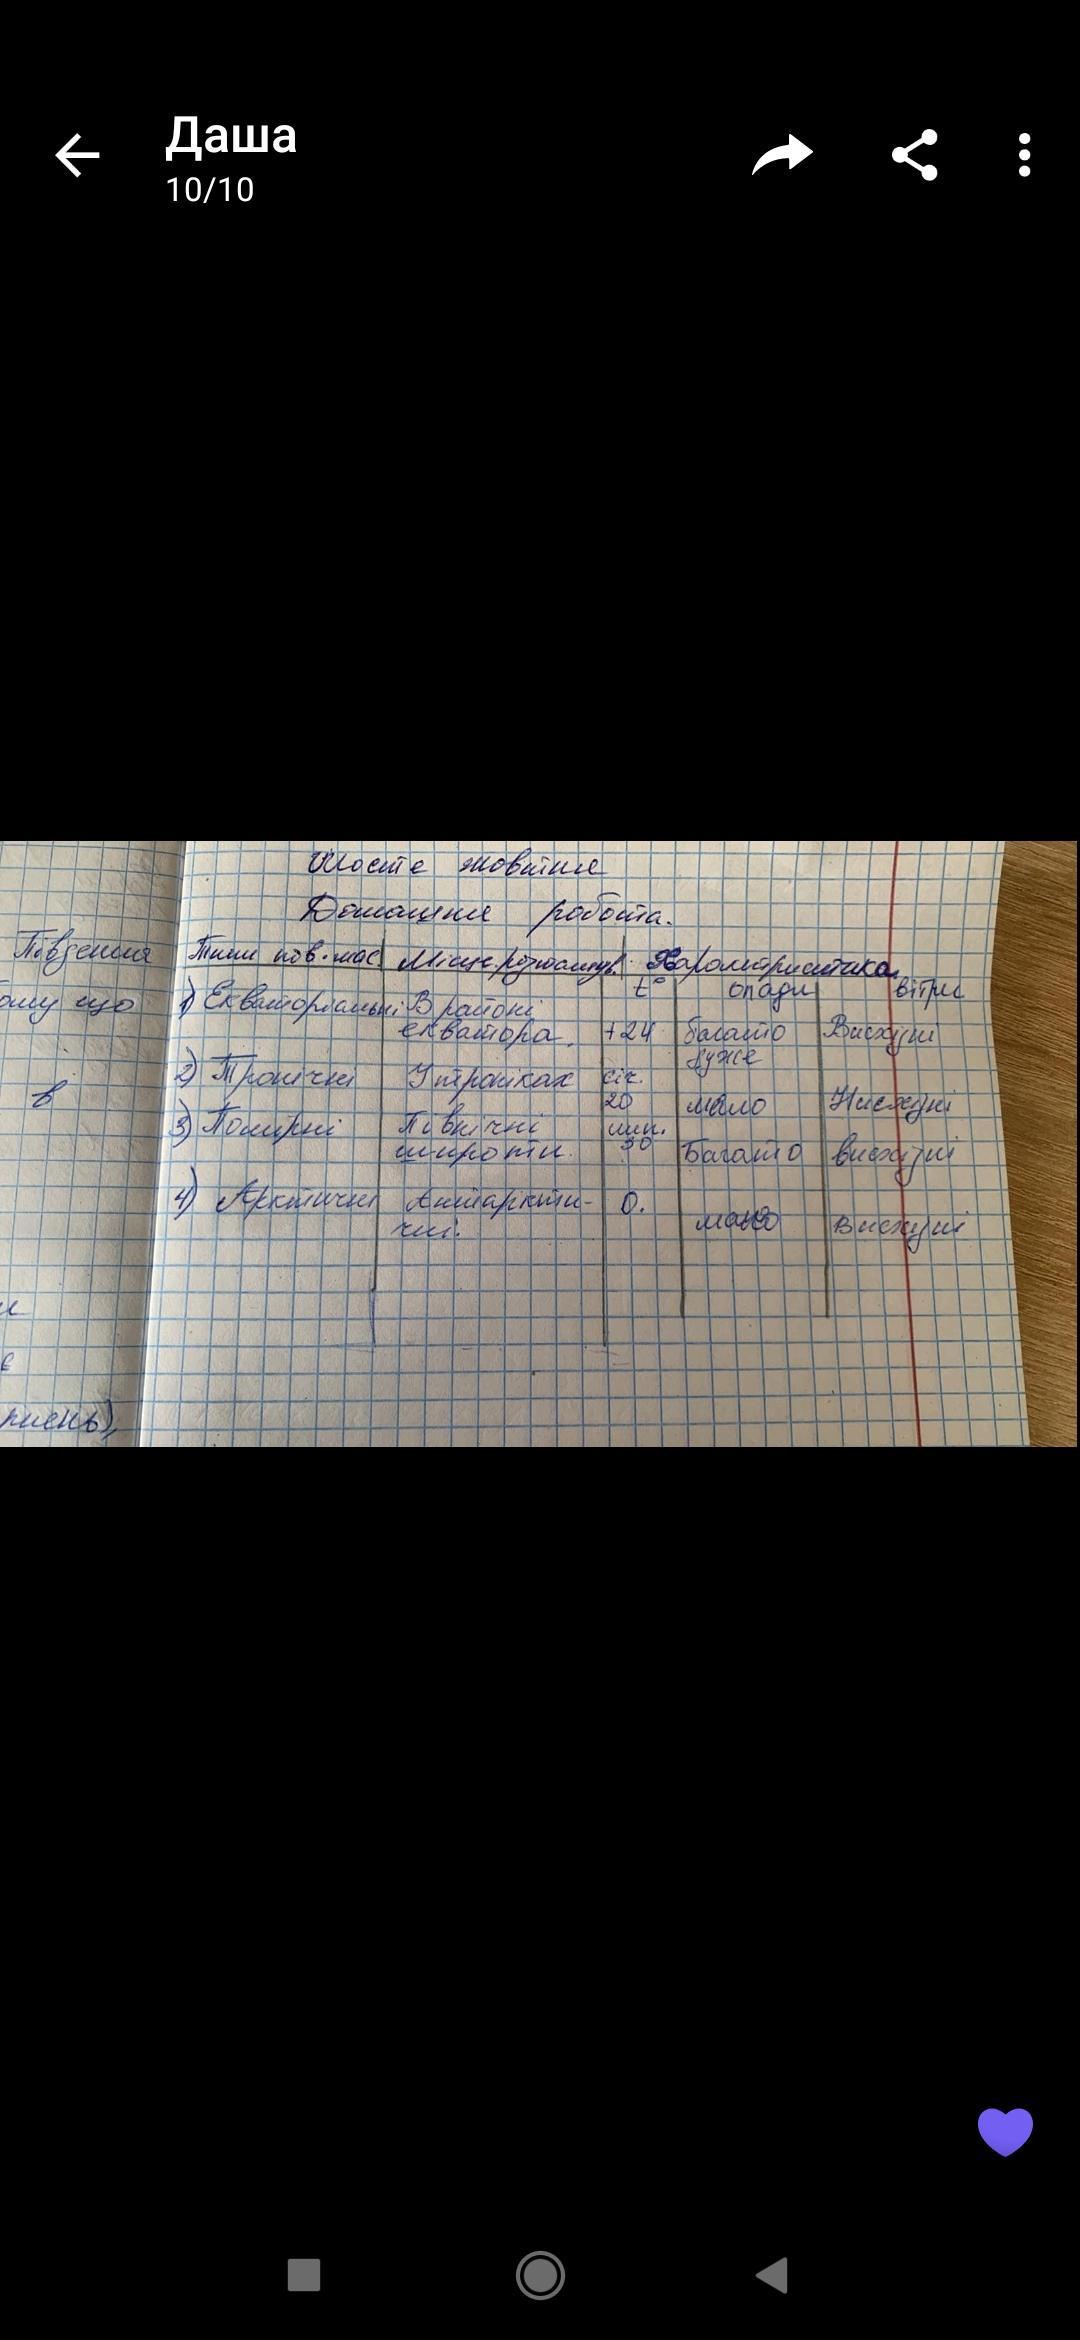 Даша
10/10
Шосте жовтня
Домашня робота.
Південня
Типи пов. мас
Місце розташув.
Характеристика
t°
опади
вітри
ому що
1) Екваторіальні
В районі
екватора.
+24
багато
дуже
Висхідні
в
2) Тропічні
У тропіках
січ.
20
мало
Нисхідні
3) Помірні
Північні
широти
лип.
30
Багато
висхідні
4) Арктичні
Антаркти-
чні.
0.
мало
висхідні